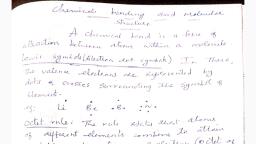 Chemical bonding and molecular
structure
A chemical bond is a force of
attraction between atoms within a molecule
Lewis symbols (electron dot symbols) I. These,
the valence electrons are represented by
dots or crosses surrounding the symbol of
element.
eg: Li Be B N
Octet rule: The rule states that atoms
of different elements combine to attain
(octet of